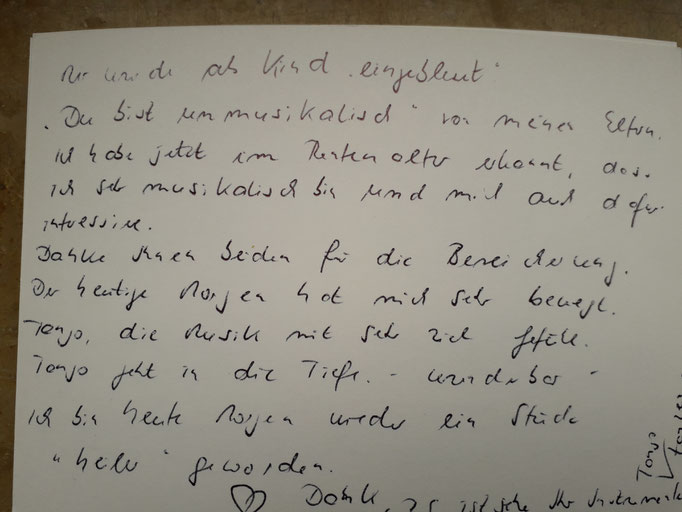 Mir wurde als Kind "eingebleut"
"Du bist unmusikalisch" von meinen Eltern.
Ich habe jetzt im Rentenalter erkannt, das.
ich sehr musikalisch bin und mich auch dafür
interessire.
Danke Ihnen beiden für die Bereicherung.
Der heutige Morgen hat mich sehr bewegt.
Tango, die Musik mit sehr viel Gefühl.
Tango geht in die Tiefe. - wunderbar -
Ich bin heute Morgen wieder ein Stück
"heiler" geworden.
Danke,
Tango